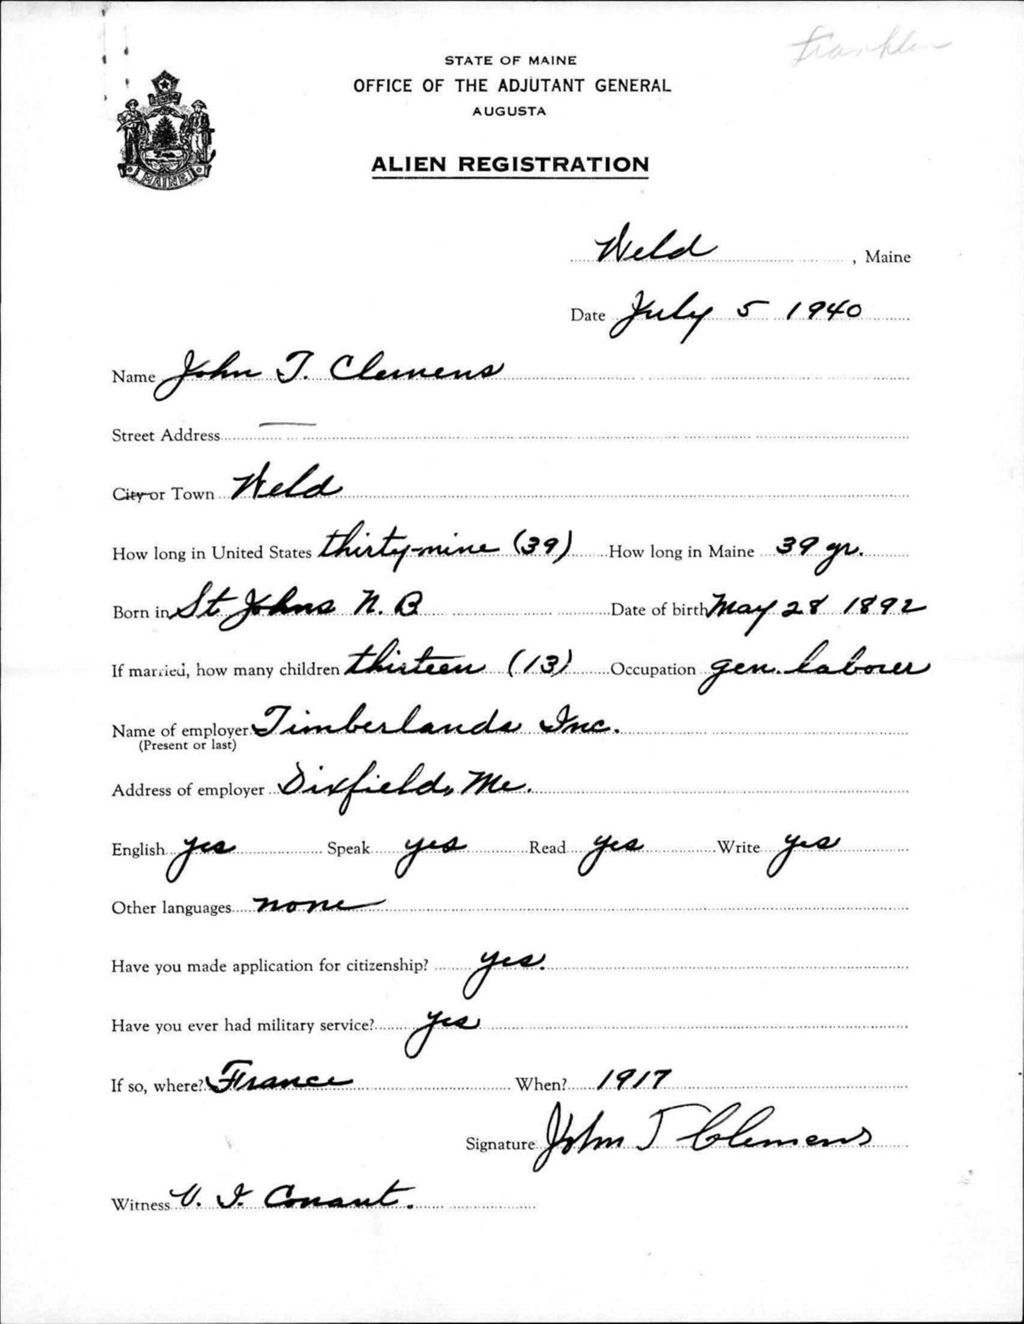 Franklin
STATE OF MAINE
OFFICE OF THE ADJUTANT GENERAL
AUGUSTA
MAINE
ALIEN REGISTRATION
Weld, Maine
Date July 5 1940
Name John T. Clemens
Street Address —
City or Town Weld
How long in United States thirty-nine (39) How long in Maine 39 yr.
Born in St Johns N. B Date of birth May 28 1892
If married, how many children thirteen (13) Occupation gen. laborer
Name of employer Timberlands Inc.
(Present or last)
Address of employer Dixfield, Me.
English yes Speak yes Read yes Write yes
Other languages none
Have you made application for citizenship? yes.
Have you ever had military service? yes
If so, where? France When? 1917
Signature John T Clemens
Witness V. I. Conant.